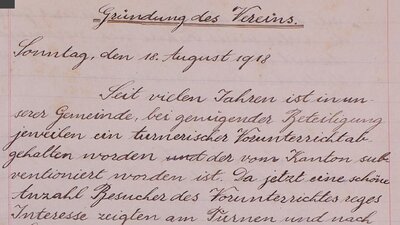 Gründung des Vereins.
Sonntag, den 18. August 1918
Seit vielen Jahren ist in un-
serer Gemeinde, bei genügender Beteiligung
jeweilen ein turnerischer Vorunterricht ab-
gehalten worden und der vom Kanton sub-
ventioniert worden ist. Da jetzt eine schöne
Anzahl Besucher des Vorunterrichtes reges
Interesse zeigten am Turnen und nach